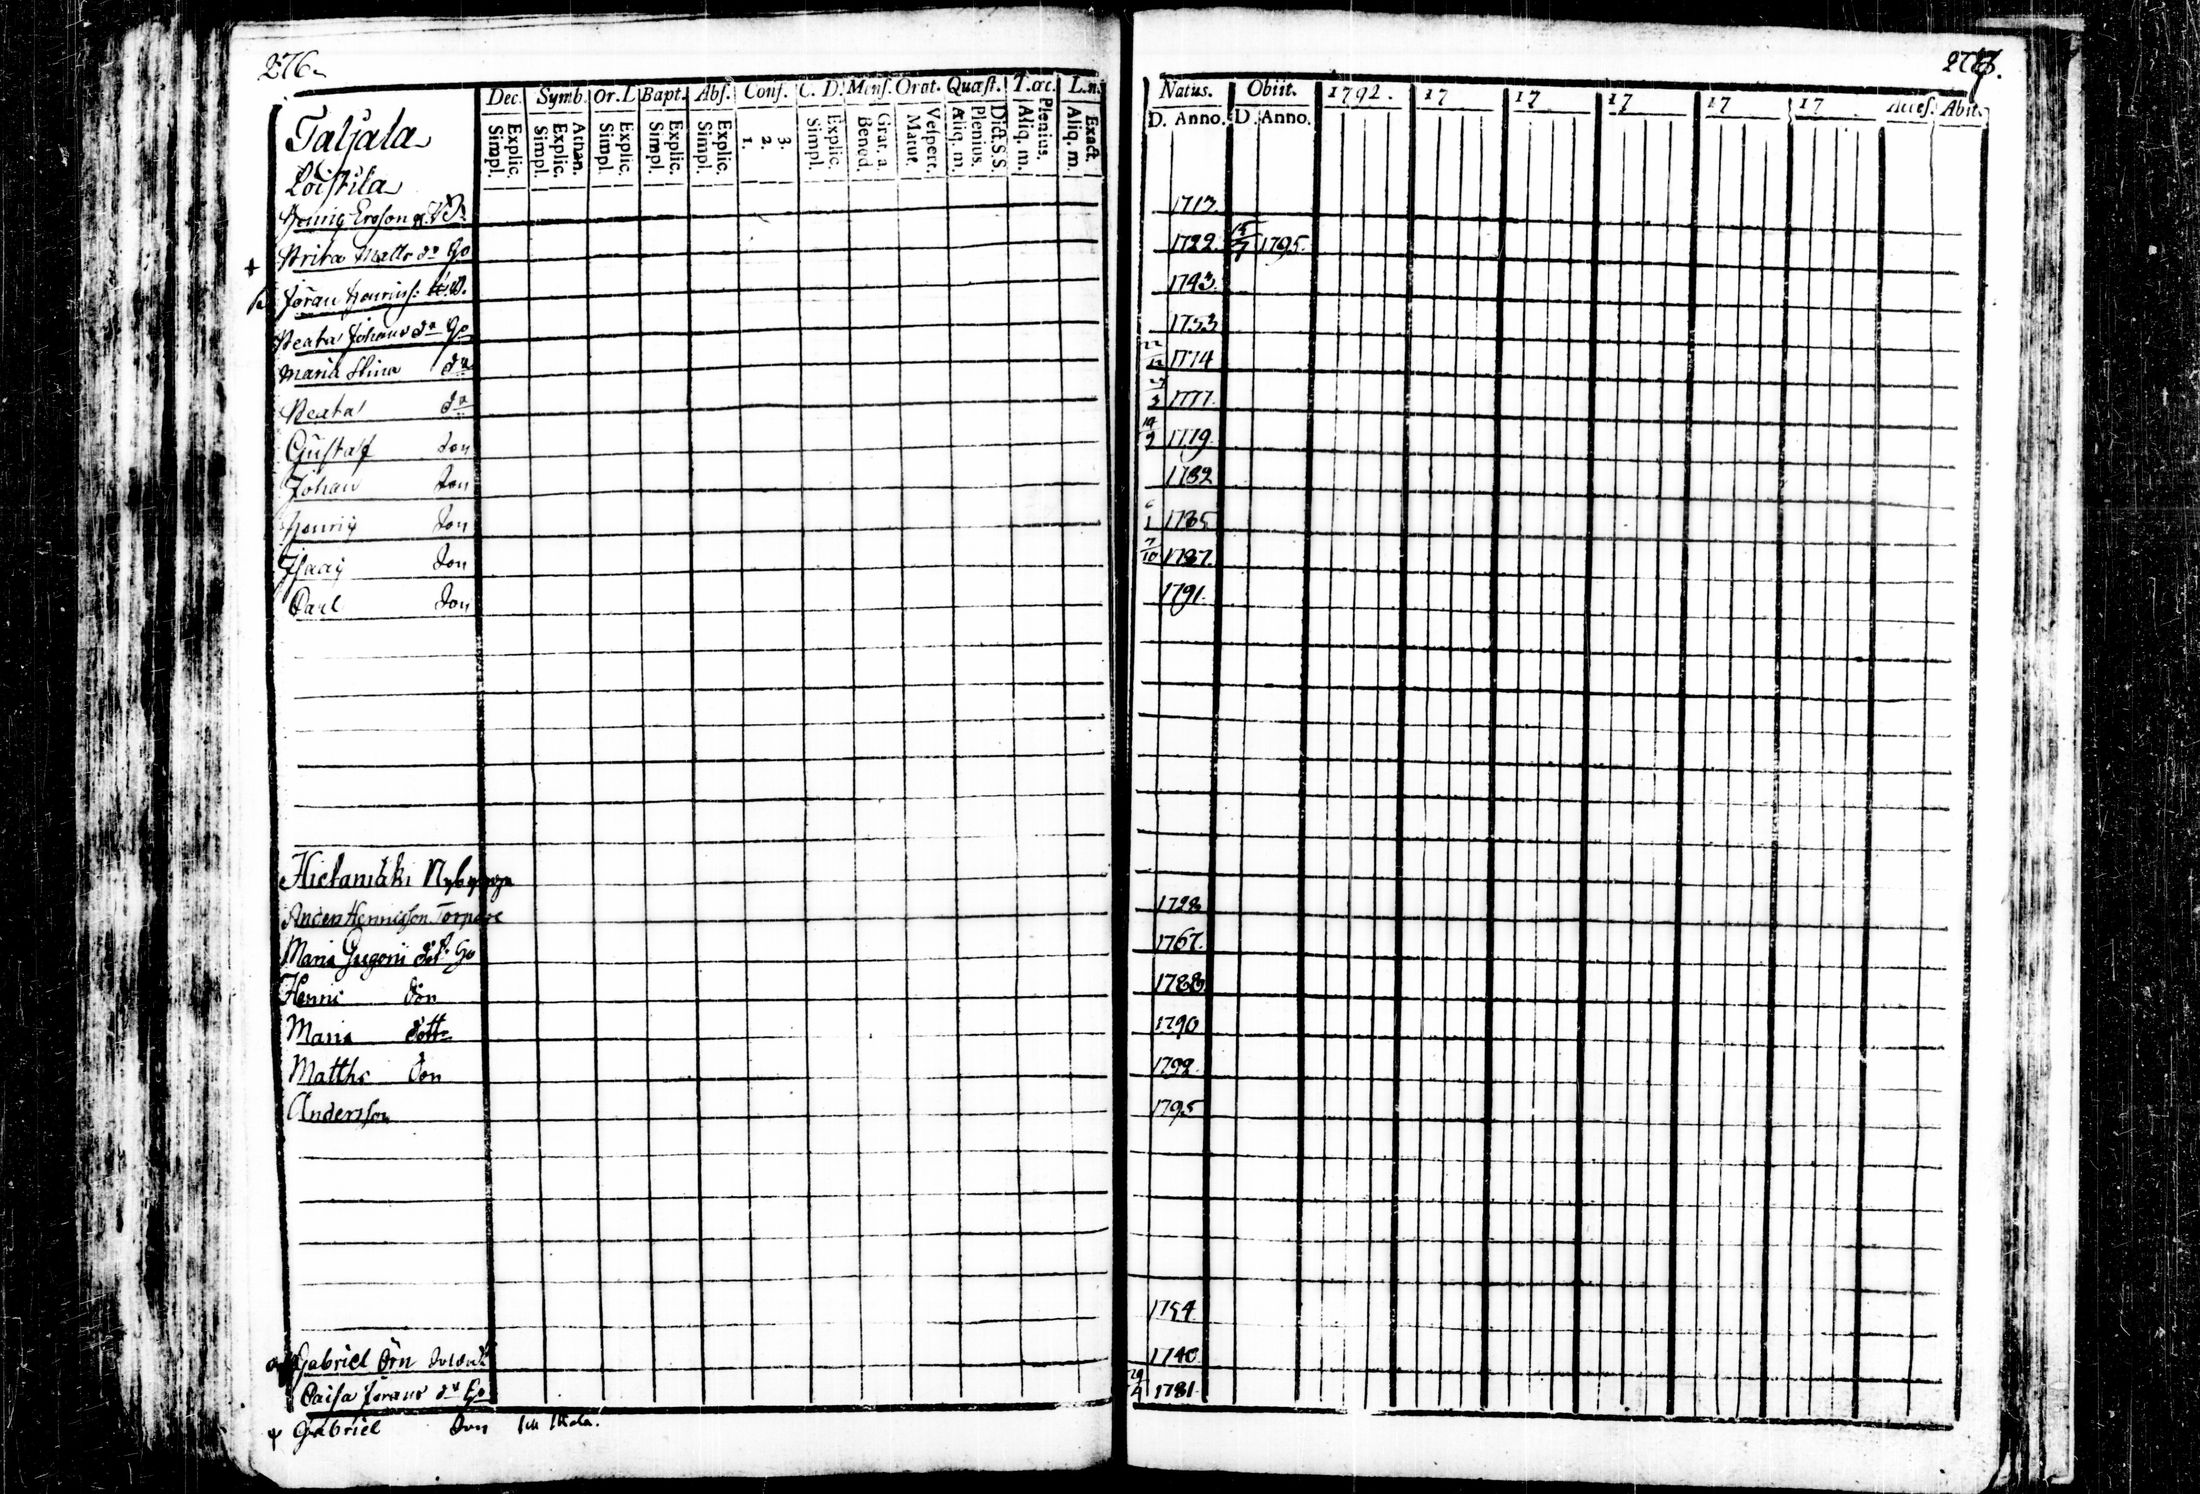 276.
Dec. Symb. Or. L Bapt. Abſ. Conf. C. D. Menſ. Orat. Quæſt. T. œc. L. n.
Explic. Simpl. Athan. Explic. Simpl. Explic. Simpl. Explic. Simpl. Explic. Simpl. 3. 2. 1. Explic. Simpl. Grat. a. Bened. Veſpert. Matut. Dict. S. S. Plenius. Aliq. m. Plenius. Aliq. m. Exact. Aliq. m.
Taljala
Loistila
Henriq Ersson
Brita Matts dr
Jöran Henrics:
Beata Johans dr
Maria Stina dr
Beata dr
Gustaf Son
Johan Son
Henriq Son
Isaaq Son
Carl Son
Hietamäki Nybygge
Anders Henricsson Torpare
Maria Gregorii
Henric Son
Maria dottr
Matths Son
Andersson
Gabriel Örn Soldat
Caisa Jörans dr
Gabriel Son
Natus. Obiit. 1792. 17 17 17 17 17 Acceſ. Abit.
D. Anno. D. Anno.
1713.
1722. 15/7 1795.
1743.
1753
22/12 1774
3 1777.
14/9 1779.
1782
6/1 1785
7/10 1787.
1791.
1728
1767.
1788
1790
1792.
1795
1754.
1740
29/4 1781.